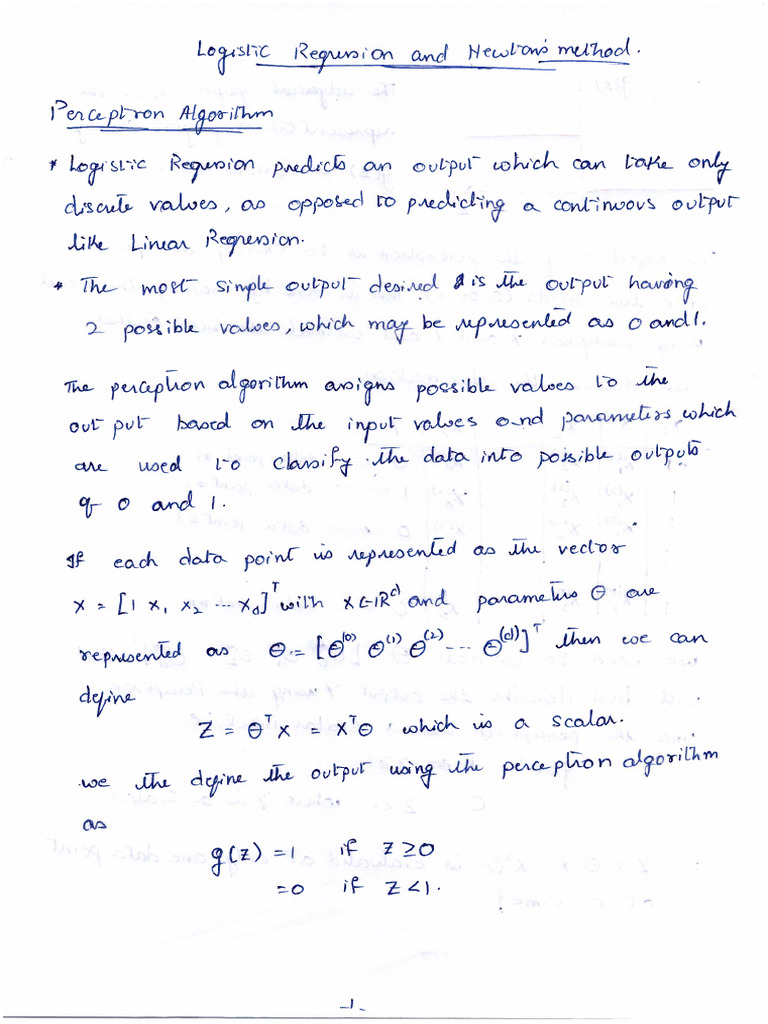 Logistic Regression and Newton's method.
Perceptron Algorithm
* Logistic Regression predicts an output which can take only
discrete values, as opposed to predicting a continuous output
like Linear Regression.
* The most simple output desired is the output having
2 possible values, which may be represented as 0 and 1.
The perception algorithm assigns possible values to the
out put based on the input values and parameters which
are used to classify the data into possible outputs
of 0 and 1.
If each data point is represented as the vector
x = [1 x₁ x₂ ... x_d]^T with x ∈ ℝ^d and parameters θ are
represented as θ = [θ^(0) θ^(1) θ^(2) ... θ^(d)]^T then we can
define
Z = θ^T x = x^T θ which is a scalar.
we the define the output using the perception algorithm
as
g(z) = 1 if z ≥ 0
= 0 if z < 1.
-1-